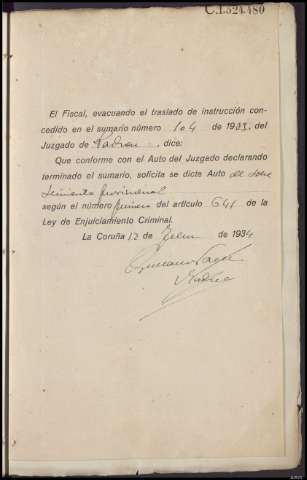 C.1.524.480
El Fiscal, evacuando el traslado de instrucción con-
cedido en el sumario número 104 de 1933, del
Juzgado de Padron, dice:
Que conforme con el Auto del Juzgedo declarando
terminado el sumario, solicita se dicte Auto de sobre
seimiento provisional
según el número primero del artículo 641 de la
Ley de Enjuiciamiento Criminal.
La Coruña 12 de de 1934